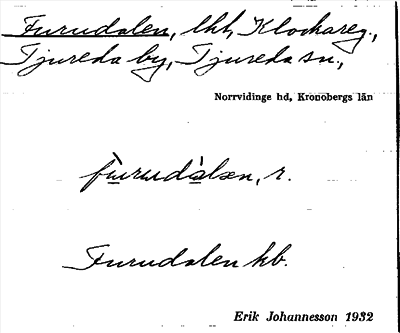 Furudalen, lht, Klockareg.,
Tjureda by, Tjureda sn.,
Norrvidinge hd, Kronobergs län
fùrudàlən, r.
Furudalen kb.
Erik Johannesson 1932